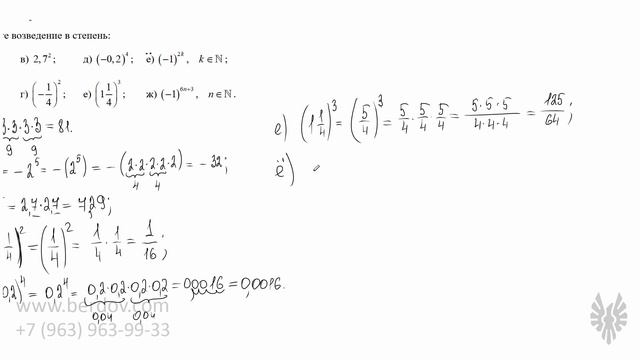 е возведение в степень:
в) 2,7²; д) (−0,2)⁴; ё) (−1)²ᵏ, k∈ℕ;
г) (−1/4)²; е) (1 1/4)³; ж) (−1)⁶ⁿ⁺³, n∈ℕ.
3·3·3·3 = 81.
9 9
= −2⁵ = −(2⁵) = −(2·2·2·2·2) = −32;
4 4
= 2,7·2,7 = 7,29;
1/4)² = (1/4)² = 1/4 · 1/4 = 1/16;
0,2)⁴ = 0,2⁴ = 0,2·0,2·0,2·0,2 = 0,0016 = 0,0016.
0,04 0,04
е) (1 1/4)³ = (5/4)³ = 5/4 · 5/4 · 5/4 = 5·5·5/4·4·4 = 125/64;
ё)
www.berdov.com
+7 (963) 963-99-33